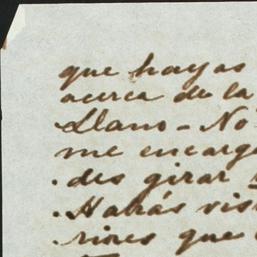 que hayas
acerca de la
Llano - No
me encarg
des girar
Habrás vis
rines que